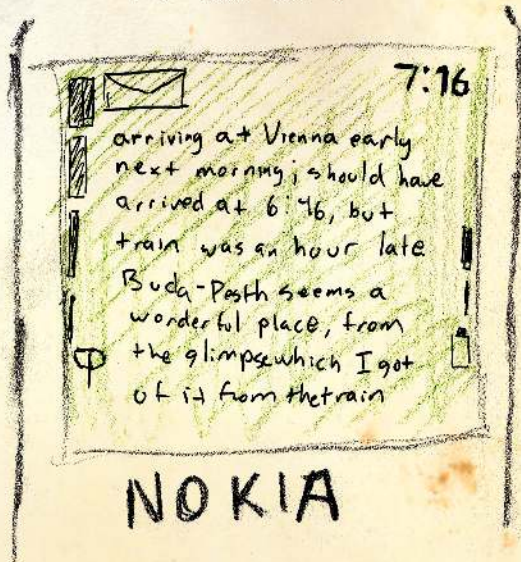 7:16
arriving at Vienna early
next morning; should have
arrived at 6:46, but
train was an hour late
Buda-Pesth seems a
wonderful place, from
the glimpse which I got
of it from the train
NOKIA